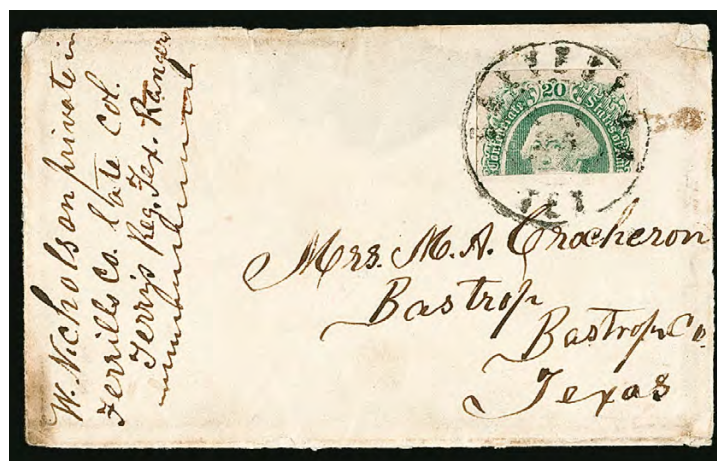 W. Nicholson private in
Ferrills Co. Late Col.
Terrys Reg. Tex. Rangers
20
Confederate States of
TEX
Mrs. M. A. Crocheron
Bastrop
Bastrop Co.
Texas